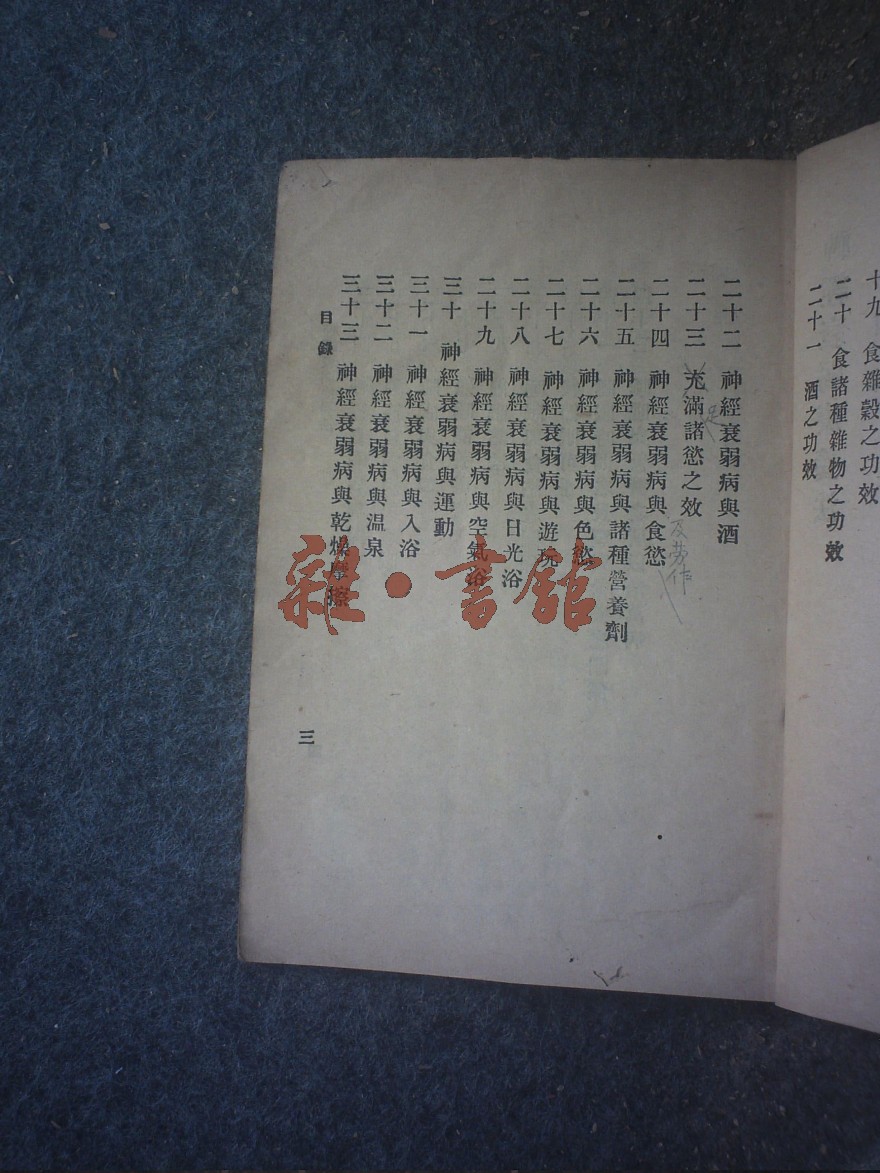 十九　食雜穀之功效
二十　食諸種雜物之功效
二十一　酒之功效
二十二　神經衰弱病與酒
二十三　充滿諸慾之效
足
二十四　神經衰弱病與食慾
及勞作
二十五　神經衰弱病與諸種營養劑
二十六　神經衰弱病與色慾
二十七　神經衰弱病與遊玩
二十八　神經衰弱病與日光浴
二十九　神經衰弱病與空氣浴
三十　神經衰弱病與運動
三十一　神經衰弱病與入浴
三十二　神經衰弱病與温泉
三十三　神經衰弱病與乾燥摩擦
目錄
三
雜·書館